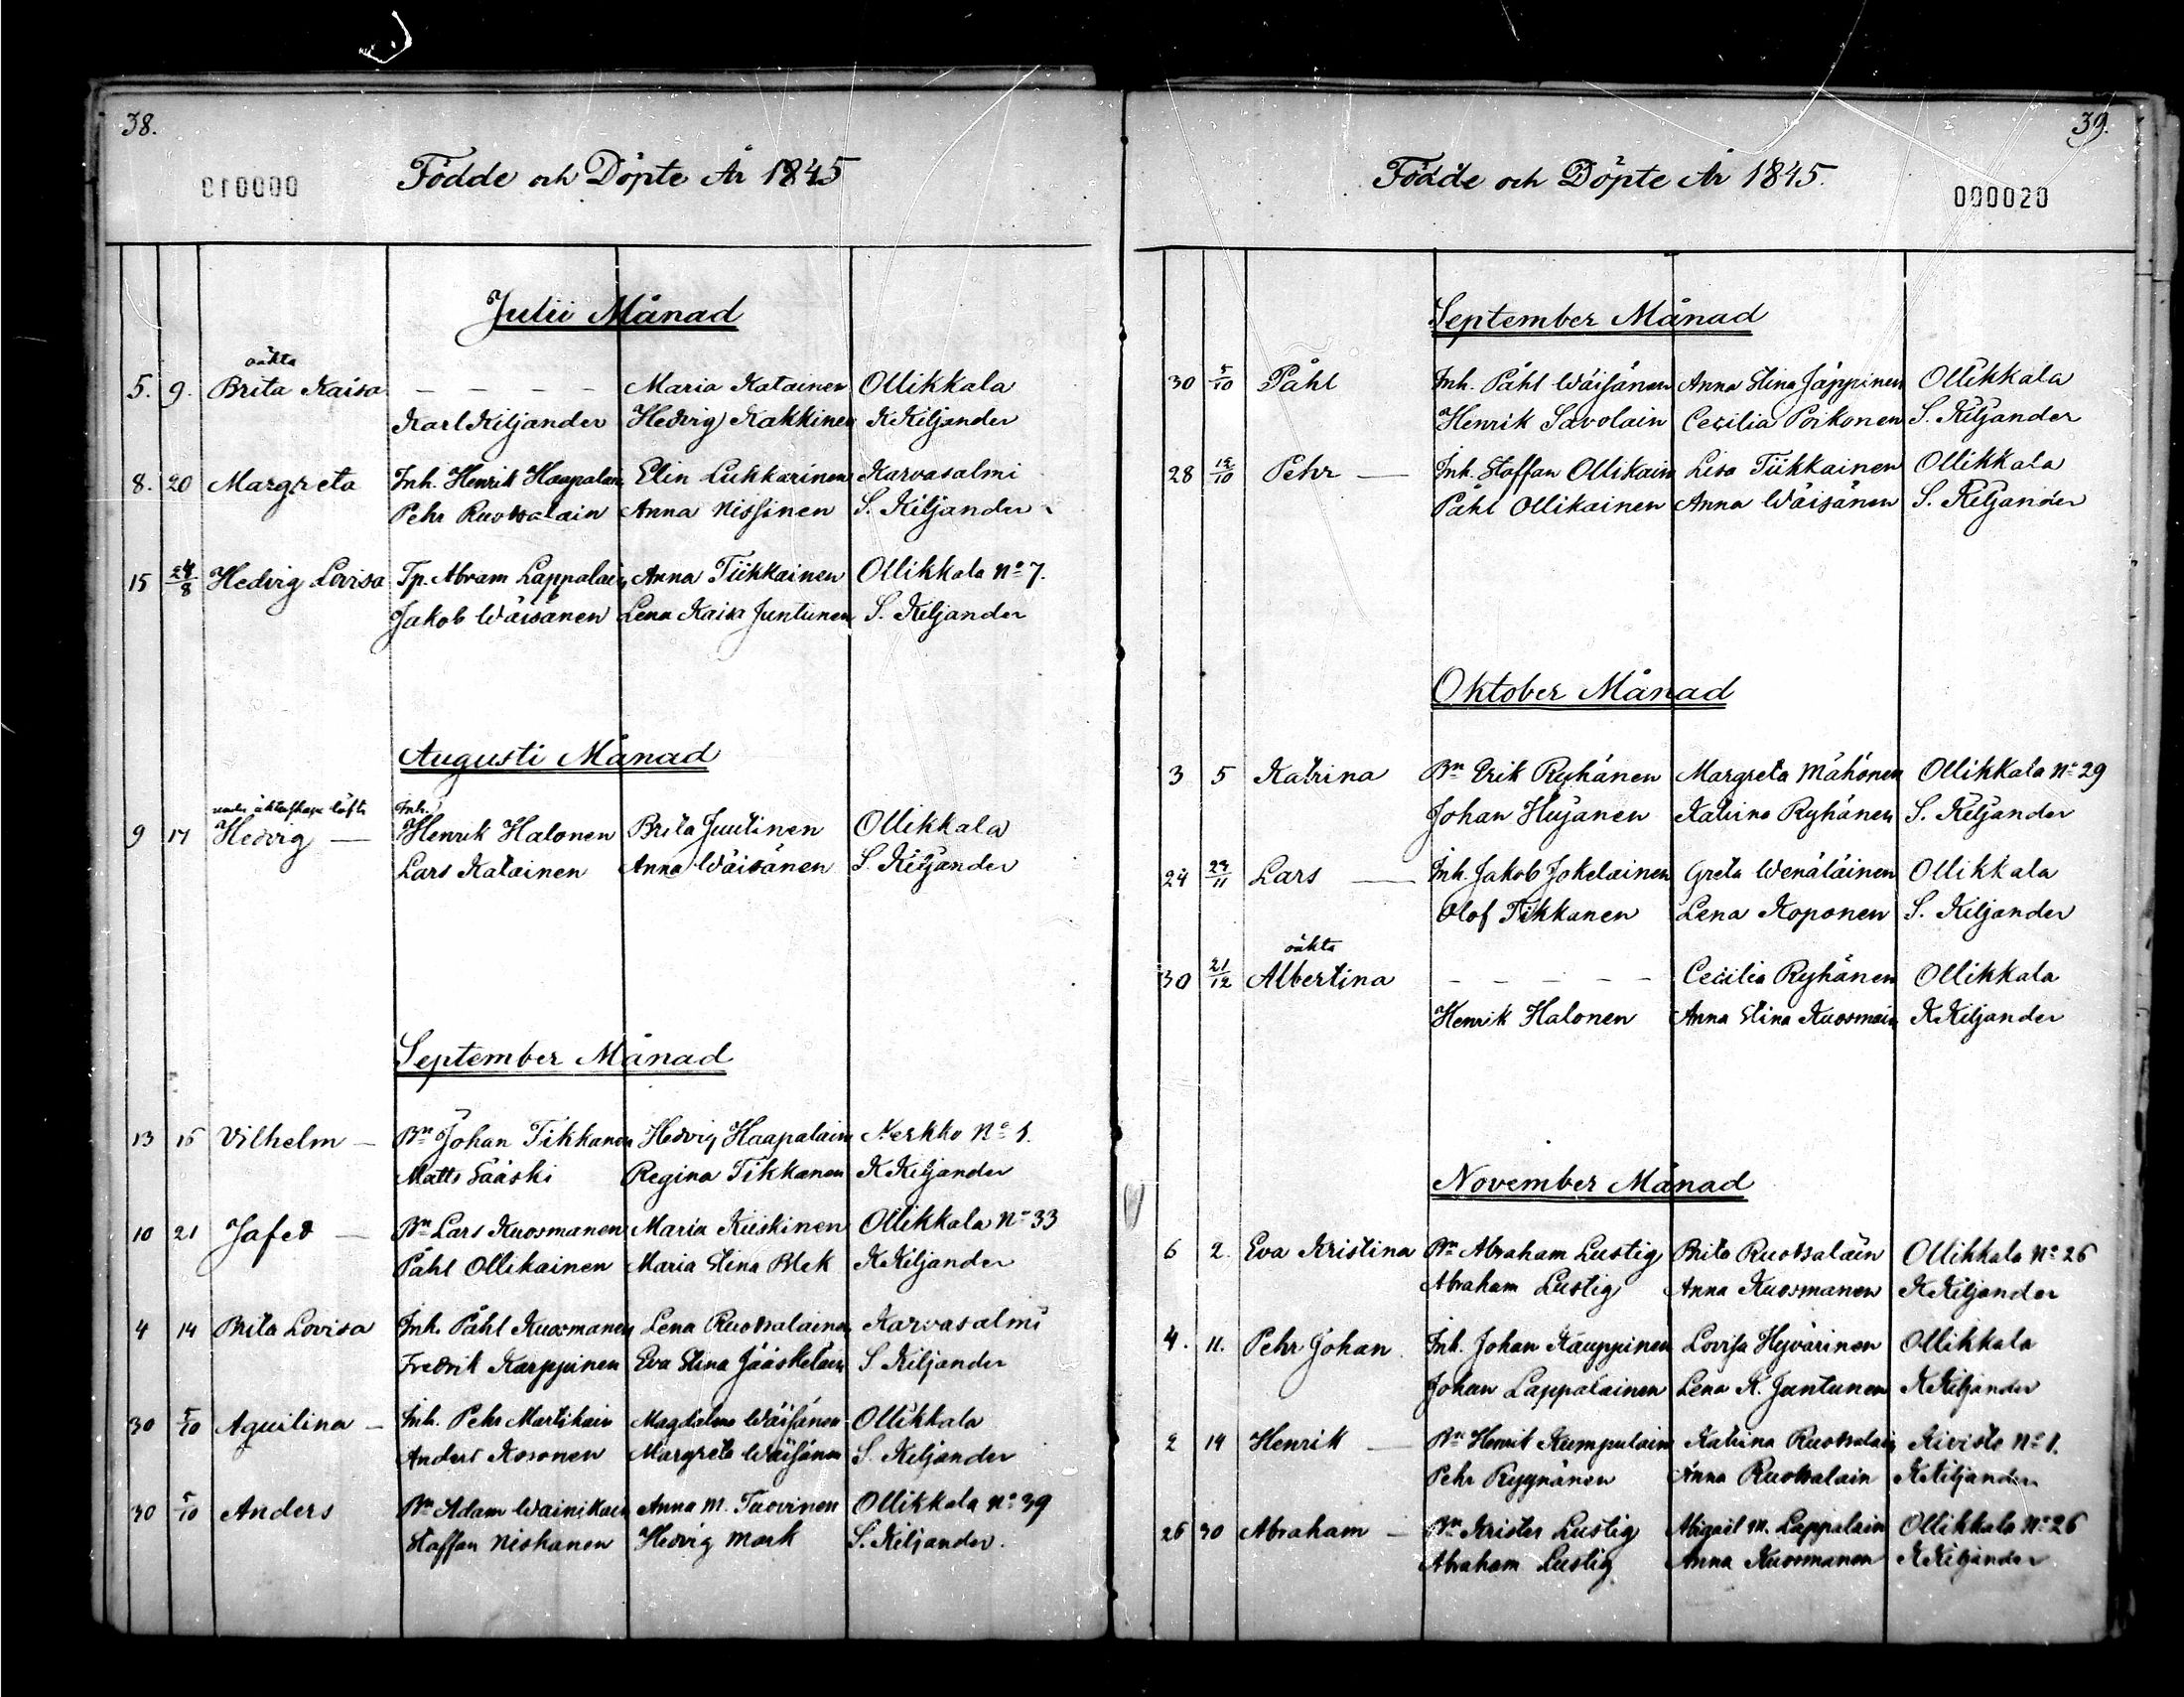 38.
000019
Födde och Döpte År 1845
Julii Månad
oäkta
5. 9. Brita Kaisa — — — — Maria Katainen Ollikkala
Karl Kiljander Hedvig Kakkinen K Kiljander
8. 20 Margreta Inh. Henrik Haapalain Elin Lukkarinen Karvasalmi
Pehr Ruotsalain Anna Nissinen S. Kiljander
15 24/8 Hedvig Lovisa Tp. Abram Lappalain Anna Tiikkainen Ollikkala No 7.
Jakob Wäisänen Lena Kaisa Juntunen S. Kiljander
Augusti Månad
under äktenskaps löfte Inh.
9 17 Hedvig — Henrik Halonen Brita Juutinen Ollikkala
Lars Katainen Anna Wäisänen S. Kiljander
September Månad
13 15 Vilhelm — Bn Johan Tikkanen Hedvig Haapalain Nerkko No 1.
Matts Sääski Regina Tikkanen K Kiljander
10 21 Jafed — Bn Lars Kuosmanen Maria Kiiskinen Ollikkala No 33
Påhl Ollikainen Maria Stina Blek K Kiljander
4 14 Brita Lovisa Inh. Påhl Kuosmanen Lena Ruotsalainen Karvasalmi
Fredrik Karppinen Eva Stina Jääskeläin S. Kiljander
30 5/10 Aguilina — Inh. Pehr Martikain Magdalena Wäisänen Ollikkala
Anders Kosonen Margreta Wäisänen S. Kiljander
30 5/10 Anders Bn Adam Wainikain Anna M. Tuovinen Ollikkala No 39
Staffan Niskanen Hedvig Mark S. Kiljander.
39.
Födde och Döpte År 1845.
000020
September Månad
30 5/10 Påhl Inh. Påhl Wäisänen Anna Stina Jäppinen Ollikkala
Henrik Savolain Cecilia Poikonen S. Kiljander
28 12/10 Pehr — Inh. Staffan Ollikain Lisa Tiikkainen Ollikkala
Påhl Ollikainen Anna Wäisänen S. Kiljander
Oktober Månad
3 5 Katrina Bn Erik Ryhänen Margreta Mähönen Ollikkala No 29
Johan Hujanen Katrina Ryhänen S. Kiljander
24 23/11 Lars — Inh. Jakob Jokelainen Greta Wenäläinen Ollikkala
Olof Tikkanen Lena Koponen S. Kiljander
oäkta
30 21/12 Albertina — — — — — Cecilia Ryhänen Ollikkala
Henrik Halonen Anna Stina Kuosmain K Kiljander
November Månad
6 2. Eva Kristina Bn Abraham Lustig Brita Ruotsalain Ollikkala No 26
Abraham Lustig Anna Kuosmanen K Kiljander
4. 11. Pehr Johan Inh. Johan Kauppinen Lovisa Hyvärinen Ollikkala
Johan Lappalainen Lena K. Juntunen K Kiljander
2 14 Henrik — Bn Henrik Kumpulain Katrina Ruotsalain Kivistö No 1.
Pehr Ryynänen Anna Ruotsalain K Kiljander
26 30 Abraham — Bn Krister Lustig Abigail M. Lappalain Ollikkala No 26
Abraham Lustig Anna Kuosmanen K Kiljander